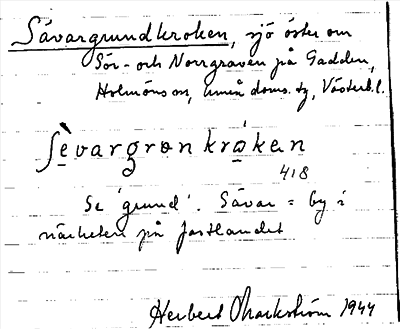 Sävargrundkroken, sjö öster om
Sör- och Norrgraven på Gadden,
Holmöns sn, Umeå doms. tg, Västerb. l.
sèvargrøn krókan
418
Se 'grund'. Sävar = by i
närheten på fastlandet
Herbert Markström 1944